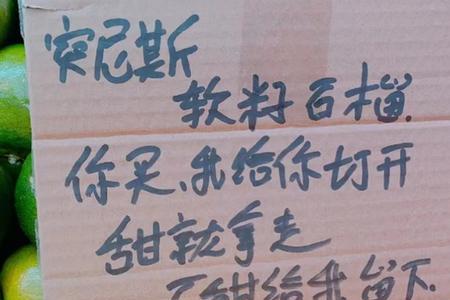 突尼斯
软籽百榴.
你买、我给你打开
甜就拿走
不甜给我留下.